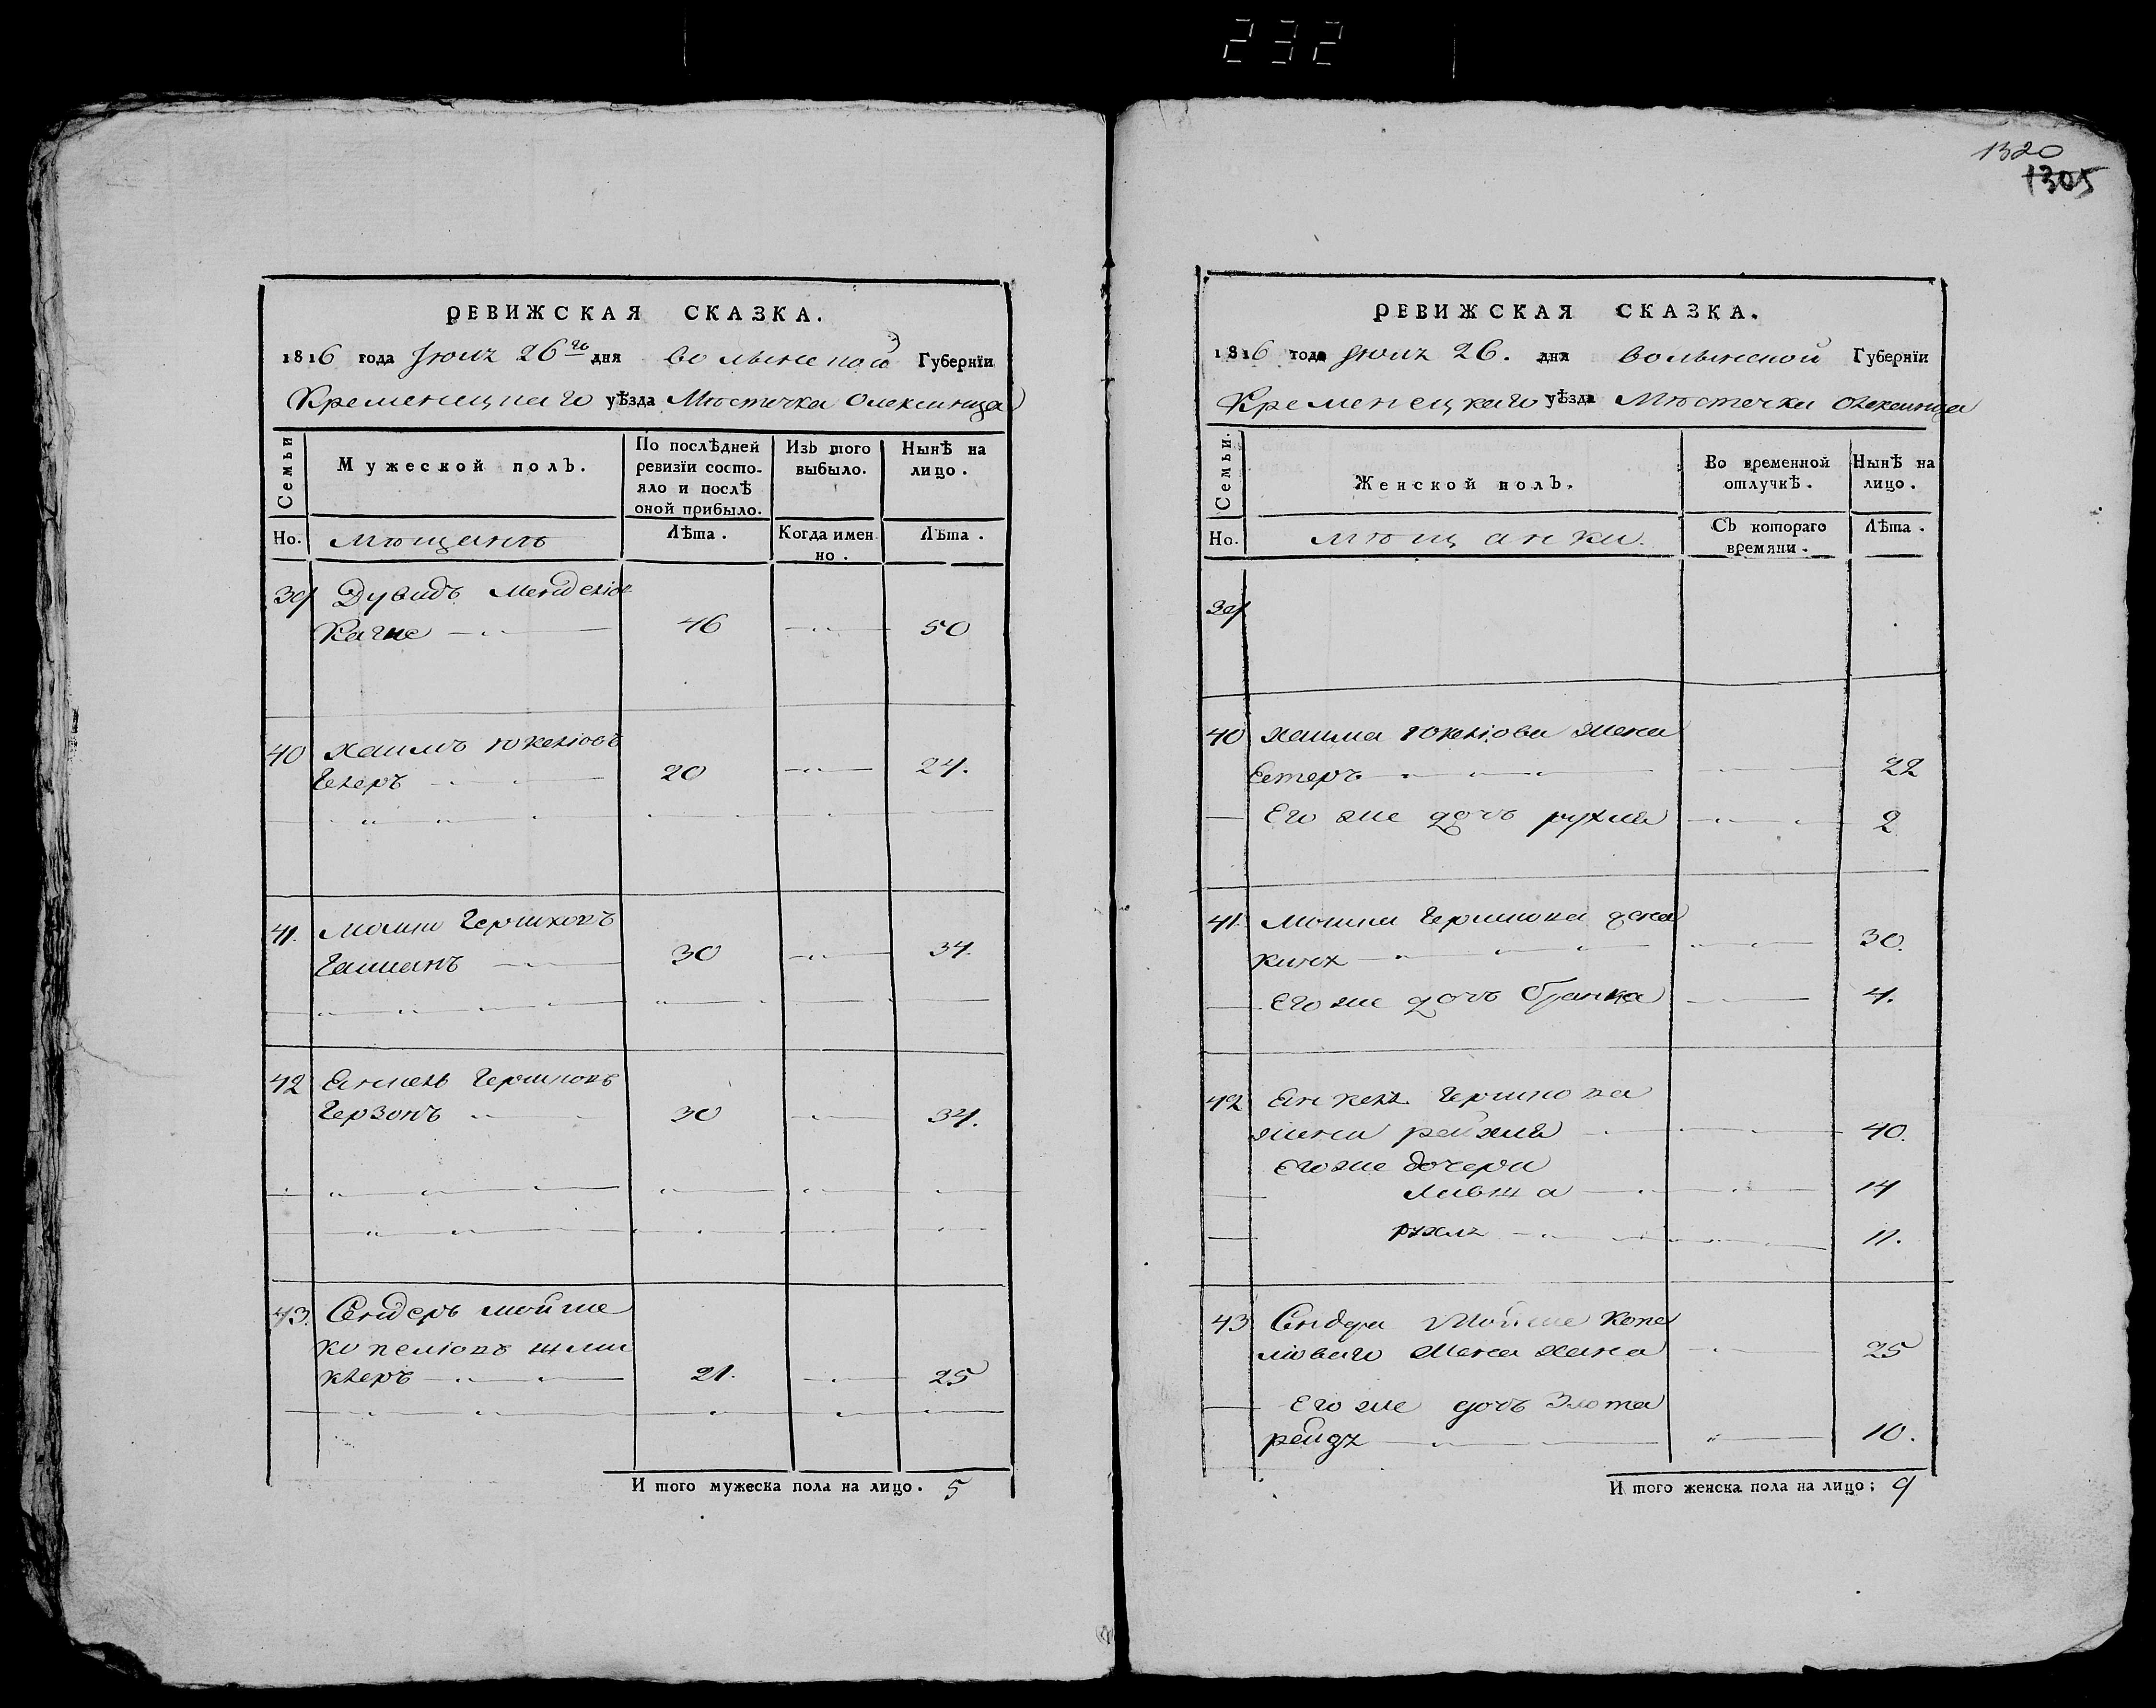 232
1320
1305
РЕВИЖСКАЯ СКАЗКА.
1816 года Iюля 26го дня Волынской Губернїи
Кременецкаго уѣзда Мѣстечка Олексинца
Семьи
Мужеской полъ.
По послѣдней ревизїи состо-
яло и послѣ
оной прибыло.
Изъ того
выбыло.
Нынѣ на
лицо.
Но.
мѣщанѣ
Лѣта.
Когда имен
но.
Лѣта.
39 Дувидъ Менделіов
46 50
40 Хаимъ Юкеліовъ
Гелеръ 20 24.
41. Мошко Гершковъ
30 34.
42 Янкель Гершковъ
Герзонъ 30 34.
43. Сендеръ мойше
копеліовъ шли
клеръ 21. 25
И того мужеска пола на лицо. 5
РЕВИЖСКАЯ СКАЗКА.
1816 года Iюля 26. дня Волынской Губернїи
Кременецкаго уѣзда Мѣстечка Олексинца
Семьи.
Женской полъ.
Во временной
отлучкѣ.
Нынѣ на
лицо.
Но.
мѣщанки.
Съ котораго
времяни.
Лѣта.
39
40 Хаима Юкеліова жена
Естеръ 22
Его же дочь рухля 2
41. Мошка Гершкова жена
30.
Его же дочь Бранка 4.
42 Янкеля Гершкова
жена рейхля 40.
Его же дочери
Ливша 14
рухля 11.
43 Сендера Мойше Копе
ліоваго жена хана 25
Его же дочь Злота
рейдя 10.
И того женска пола на лицо; 9